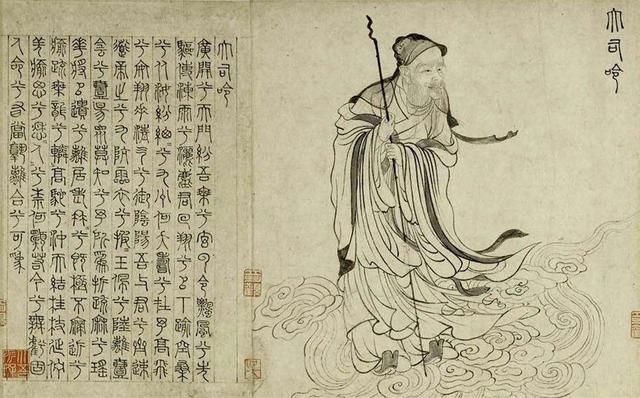 大司命
大司命
廣開兮天門紛吾乘兮玄雲令飄風兮先
驅使涷雨兮灑塵君迴翔兮以下踰空桑
兮從女紛總兮九州何壽夭兮在予高飛
兮安翔乘清氣兮御陰陽吾與君兮齊速
導帝之兮九坑靈衣兮被玉佩兮陸離壹
陰兮壹陽眾莫知兮余所為折疏麻兮瑤
華將以遺兮離居老冉兮既極不寖近兮
愈疏乘龍兮轔高駝兮沖天結桂枝兮延佇
羌愈思兮愁人兮奈何願若今兮無虧固
人命兮有當孰離合兮可為